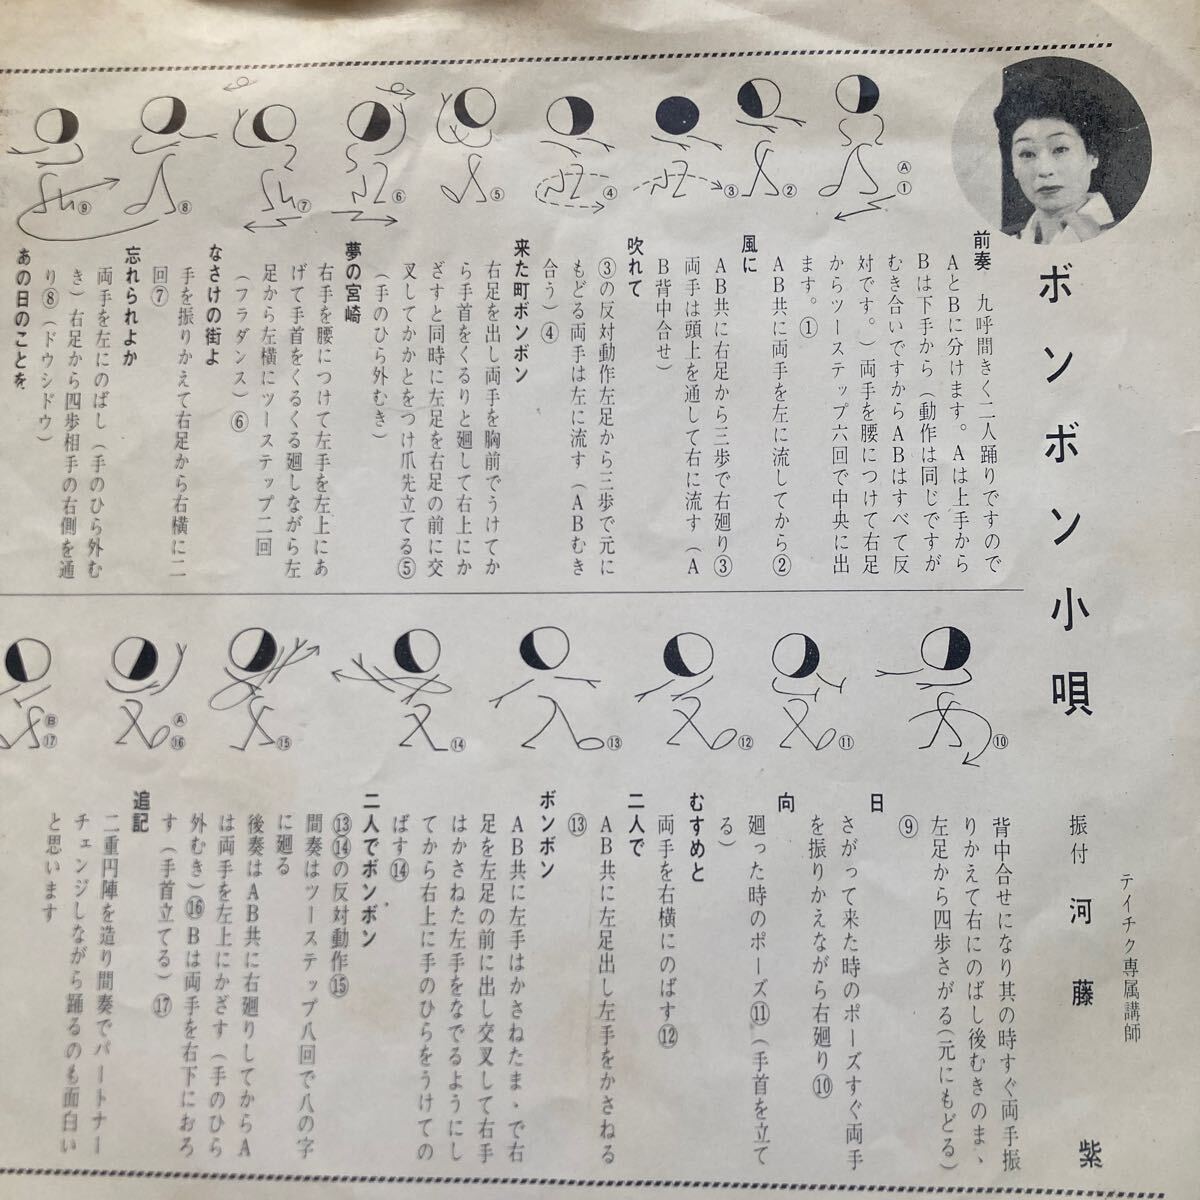 ボンボン小唄
テイチク専属講師
振付 河藤 紫
前奏 九呼間きく二人踊りですので
AとBに分けます。Aは上手から
Bは下手から(動作は同じですが
むき合いですからABはすべて反
対です。)両手を腰につけて右足
からツーステップ六回で中央に出
ます。①
風に
AB共に両手を左に流してから②
吹れて
AB共に右足から三歩で右廻り③
両手は頭上を通して右に流す(A
B背中合せ)
来た町ボンボン
③の反対動作左足から三歩で元に
もどる両手は左に流す(ABむき
合う)④
夢の宮崎
右足を出し両手を胸前でうけてか
ら手首をくるりと廻して右上にか
ざすと同時に左足を右足の前に交
叉してかかとをつけ爪先立てる⑤
(手のひら外むき)
なさけの街よ
右手を腰につけて左手を左上にあ
げて手首をくるくる廻しながら左
足から左横にツーステップ二回
(フラダンス)⑥
忘れられよか
手を振りかえて右足から右横に二
回⑦
あの日のことを
両手を左にのばし(手のひら外む
き)右足から四歩相手の右側を通
り⑧(ドウシドウ)
背中合せになり其の時すぐ両手振
りかえて右にのばし後むきのまゝ
左足から四歩さがる(元にもどる)
⑨
日
さがって来た時のポーズすぐ両手
を振りかえながら右廻り⑩
向
廻った時のポーズ⑪(手首を立て
る)
むすめと
両手を右横にのばす⑫
二人で
AB共に左足出し左手をかさねる
⑬
ボンボン
AB共に左手はかさねたまゝで右
足を左足の前に出し交叉して右手
はかさねた左手をなでるようにし
てから右上に手のひらをうけての
ばす⑭
二人でボンボン
⑬⑭の反対動作⑮
間奏はツーステップ八回で八の字
に廻る
後奏はAB共に右廻りしてからA
は両手を左上にかざす(手のひら
外むき)⑯Bは両手を右下におろ
す(手首立てる)⑰
追記
二重円陣を造り間奏でパートナー
チェンジしながら踊るのも面白い
と思います
Ⓐ
①
②
③
④
⑤
⑥
⑦
⑧
⑨
⑩
⑪
⑫
⑬
⑭
⑮
Ⓐ
⑯
Ⓑ
⑰